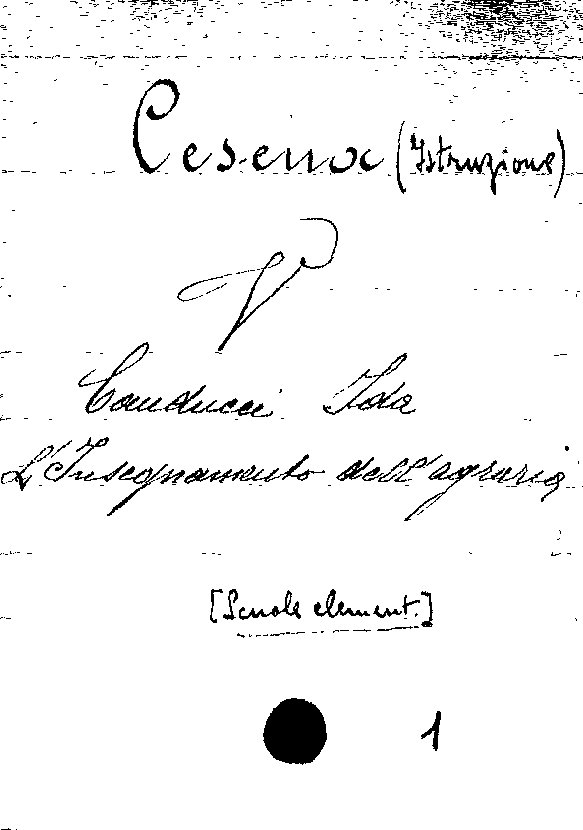 Cesena (Istruzione)
V
Canducci Ida
L'Insegnamento dell'agraria
[Scuole element.]
1